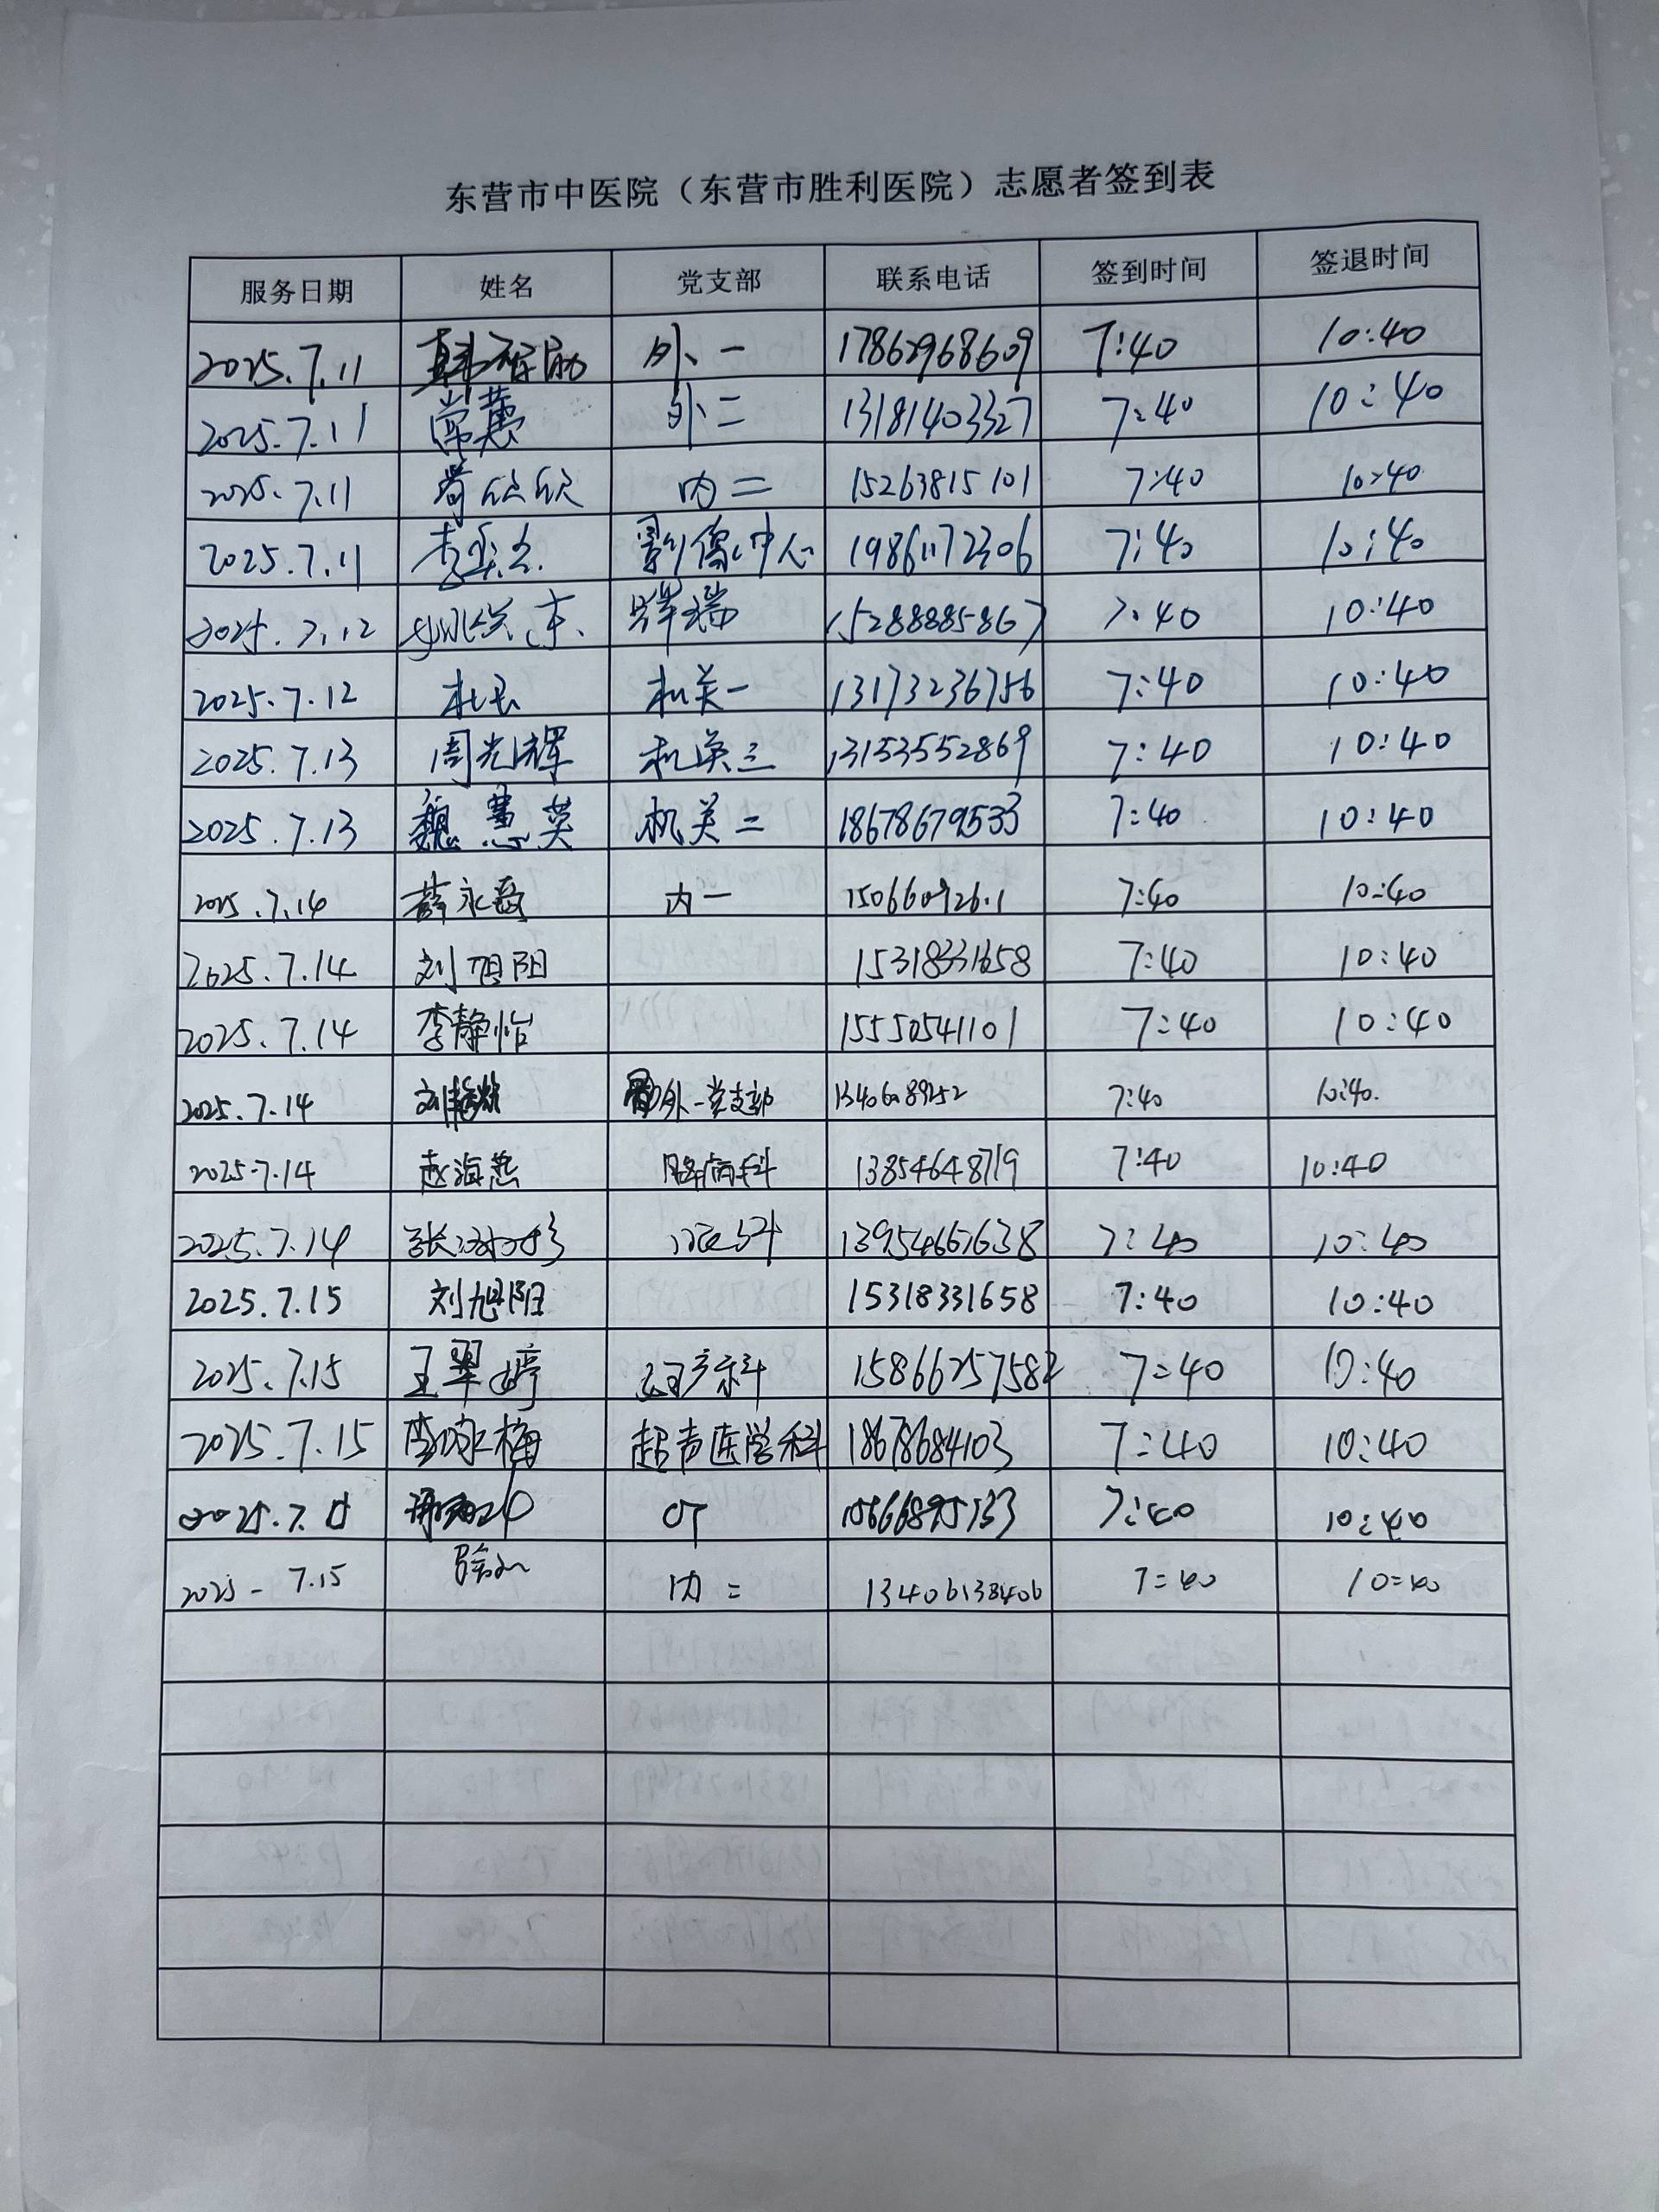 东营市中医院（东营市胜利医院）志愿者签到表
服务日期 姓名 党支部 联系电话 签到时间 签退时间
2025.7.11 外一 17862968609 7:40 10:40
2025.7.11 常蕙 外二 13181403327 7:40 10:40
2025.7.11 欣欣 内二 15263815101 7:40 10:40
2025.7.11 李 影像中心 19861172306 7:40 10:40
2025.7.12 姚 辉瑞 15288885867 7:40 10:40
2025.7.12 机关一 13173236756 7:40 10:40
2025.7.13 周光辉 机关三 13153552869 7:40 10:40
2025.7.13 魏慧英 机关二 18678679533 7:40 10:40
2025.7.14 薛永 内一 7:40 10:40
2025.7.14 刘旭阳 15318331658 7:40 10:40
2025.7.14 李静怡 15550541101 7:40 10:40
2025.7.14 刘 外一党支部 7:40 10:40.
2025.7.14 赵海燕 脾病科 13854648719 7:40 10:40
2025.7.14 张 7:40 10:40
2025.7.15 刘旭阳 15318331658 7:40 10:40
2025.7.15 王翠婷 妇产科 15866757582 7:40 10:40
2025.7.15 李咏梅 超声医学科 18678684103 7:40 10:40
2025.7.15 7:40 10:40
2025-7.15 内二 13406138406 7:40 10:40